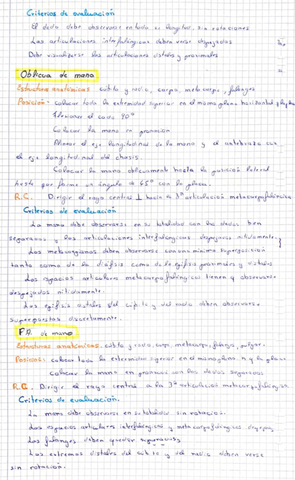 Criterios de evaluación
El dedo debe observarse en toda su longitud, sin rotaciones
Las articulaciones interfalángicas deben verse despejadas
Debe visualizarse las articulaciones distales y proximales
Oblicua de mano
Estructuras anatómicas: cubito y radio, carpo, metacarpo, falanges
Posición - colocar toda la extremidad superior en el mismo plano horizontal
Flexionar el codo 90°
Colocar la mano en pronación
Alinear el eje longitudinal de la mano y el antebrazo con
el eje longitudinal del chasis
Colocar la mano oblicuamente hasta la posición lateral
hasta que forme un ángulo de 45° con la placa.
R.C. Dirigir el rayo central ⊥ hacia la 3ª articulación metacarpofalángica
Criterios de evaluación
La mano debe observarse en su totalidad con los dedos bien
separados y las articulaciones interfalángicas despejadas nítidamente.
Los metacarpianos deben observarse con una mínima superposición
tanto como de la diáfisis como de la epífisis proximales y distales
Los espacios articulares metacarpofalángicos tienen q observarse
despejados nítidamente.
Las epífisis distales del cubito y del radio deben observarse
superpuestas discretamente.
P.A de mano
Estructuras anatómicas: cubito y radio, carpo, metacarpo, falanges, pulgar.
Posicion: colocar toda la extremidad superior en el mismo plano
Colocar la mano en pronacion con los dedos separados
R.C. Dirigir el rayo central a la 3ª articulación metacarpofalángica.
Criterios de evaluación.
La mano debe observarse en su totalidad sin rotación.
Los espacios articulares interfalángicos y metacarpofalángicos despejados
Las falanges deben quedar separadas
Los extremos distales del cubito y del radio deben verse
sin rotación.